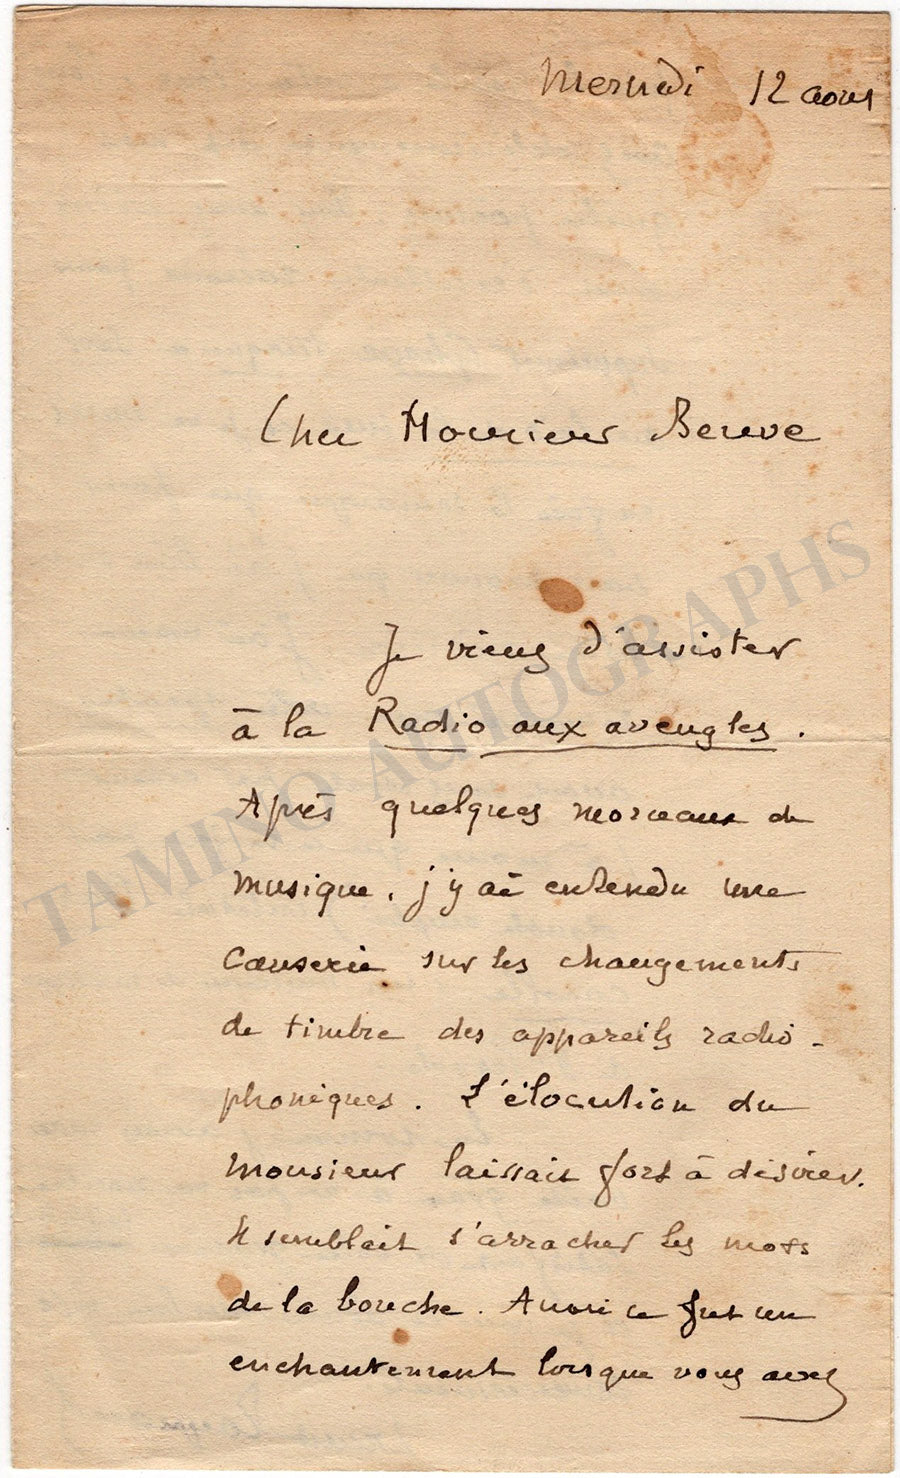 Mercredi 12 aout
Cher Monsieur Beuve
Je viens d'assister
à la Radio aux aveugles.
Après quelques morceaux de
musique, j'y ai entendu une
causerie sur les changements
de timbre des appareils radio-
phoniques. L'élocution du
Monsieur laissait fort à désirer.
Il semblait s'arracher les mots
de la bouche. Aussi ce fut un
enchantement lorsque vous avez
TAMINO AUTOGRAPHS